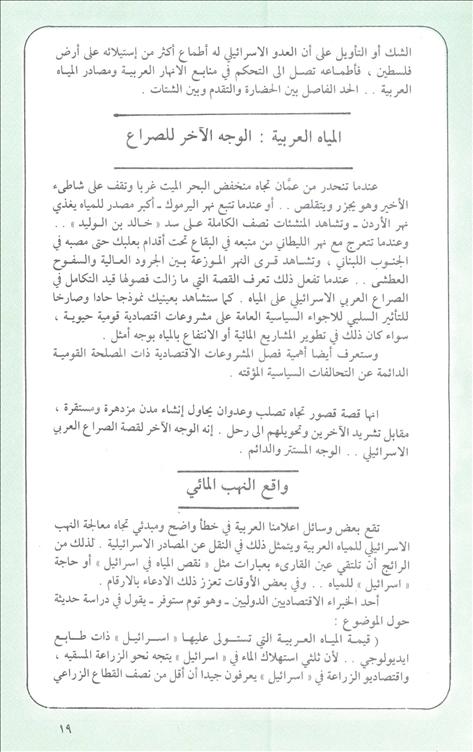 الشك أو التأويل على أن العدو الاسرائيلي له أطماع أكثر من إستيلائه على أرض
فلسطين ، فأطماعه تصل الى التحكم في منابع الانهار العربية ومصادر المياه
العربية . . الحد الفاصل بين الحضارة والتقدم وبين الشتات .
المياه العربية : الوجه الآخر للصراع
عندما تنحدر من عمَّان تجاه منخفض البحر الميت غربا وتقف على شاطىء
الأخير وهو يجزر ويتقلص . . أو عندما تتبع نهر اليرموك ـ أكبر مصدر للمياه يغذي
نهر الأردن ـ وتشاهد المنشئات نصف الكاملة على سد « خالد بن الوليد » . .
وعندما تتعرج مع نهر الليطاني من منبعه في البقاع تحت أقدام بعلبك حتى مصبه في
الجنوب اللبناني ، وتشاهد قرى النهر الموزعة بين الجرود العالية والسفوح
العطشى . . عندما تفعل ذلك تعرف القصة التي ما زالت فصولها قيد التكامل في
الصراع العربي الاسرائيلي على المياه . كما ستشاهد بعينيك نموذجا حادا وصارخا
للتأثير السلبي للاجواء السياسية العامة على مشروعات اقتصادية قومية حيوية ،
سواء كان ذلك في تطوير المشاريع المائية أو الانتفاع بالمياه بوجه أمثل .
وستعرف أيضا أهمية فصل المشروعات الاقتصادية ذات المصلحة القومية
الدائمة عن التحالفات السياسية المؤقته .
انها قصة قصور تجاه تصلب وعدوان يحاول إنشاء مدن مزدهرة ومستقرة ،
مقابل تشريد الآخرين وتحويلهم الى رحل . إنه الوجه الآخر لقصة الصراع العربي
الاسرائيلي . . الوجه المستتر والدائم .
واقع النهب المائي
تقع بعض وسائل اعلامنا العربية في خطأ واضح ومبدئي تجاه معالجة النهب
الاسرائيلي للمياه العربية ويتمثل ذلك في النقل عن المصادر الاسرائيلية . لذلك من
الرائج أن تلتقي عين القارىء بعبارات مثل « نقص المياه في اسرائيل » أو حاجة
« اسرائيل » للمياه . . وفي بعض الأوقات تعزز ذلك الادعاء بالارقام .
أحد الخبراء الاقتصاديين الدوليين ـ وهو توم ستوفر ـ يقول في دراسة حديثة
حول الموضوع :
( قيمة المياه العربية التي تستولى عليها « اسرائيل » ذات طابع
ايديولوجي . . لأن ثلثي استهلاك الماء في « اسرائيل » يتجه نحو الزراعة المسقيه ،
واقتصاديو الزراعة في « اسرائيل » يعرفون جيدا أن أقل من نصف القطاع الزراعي
١٩